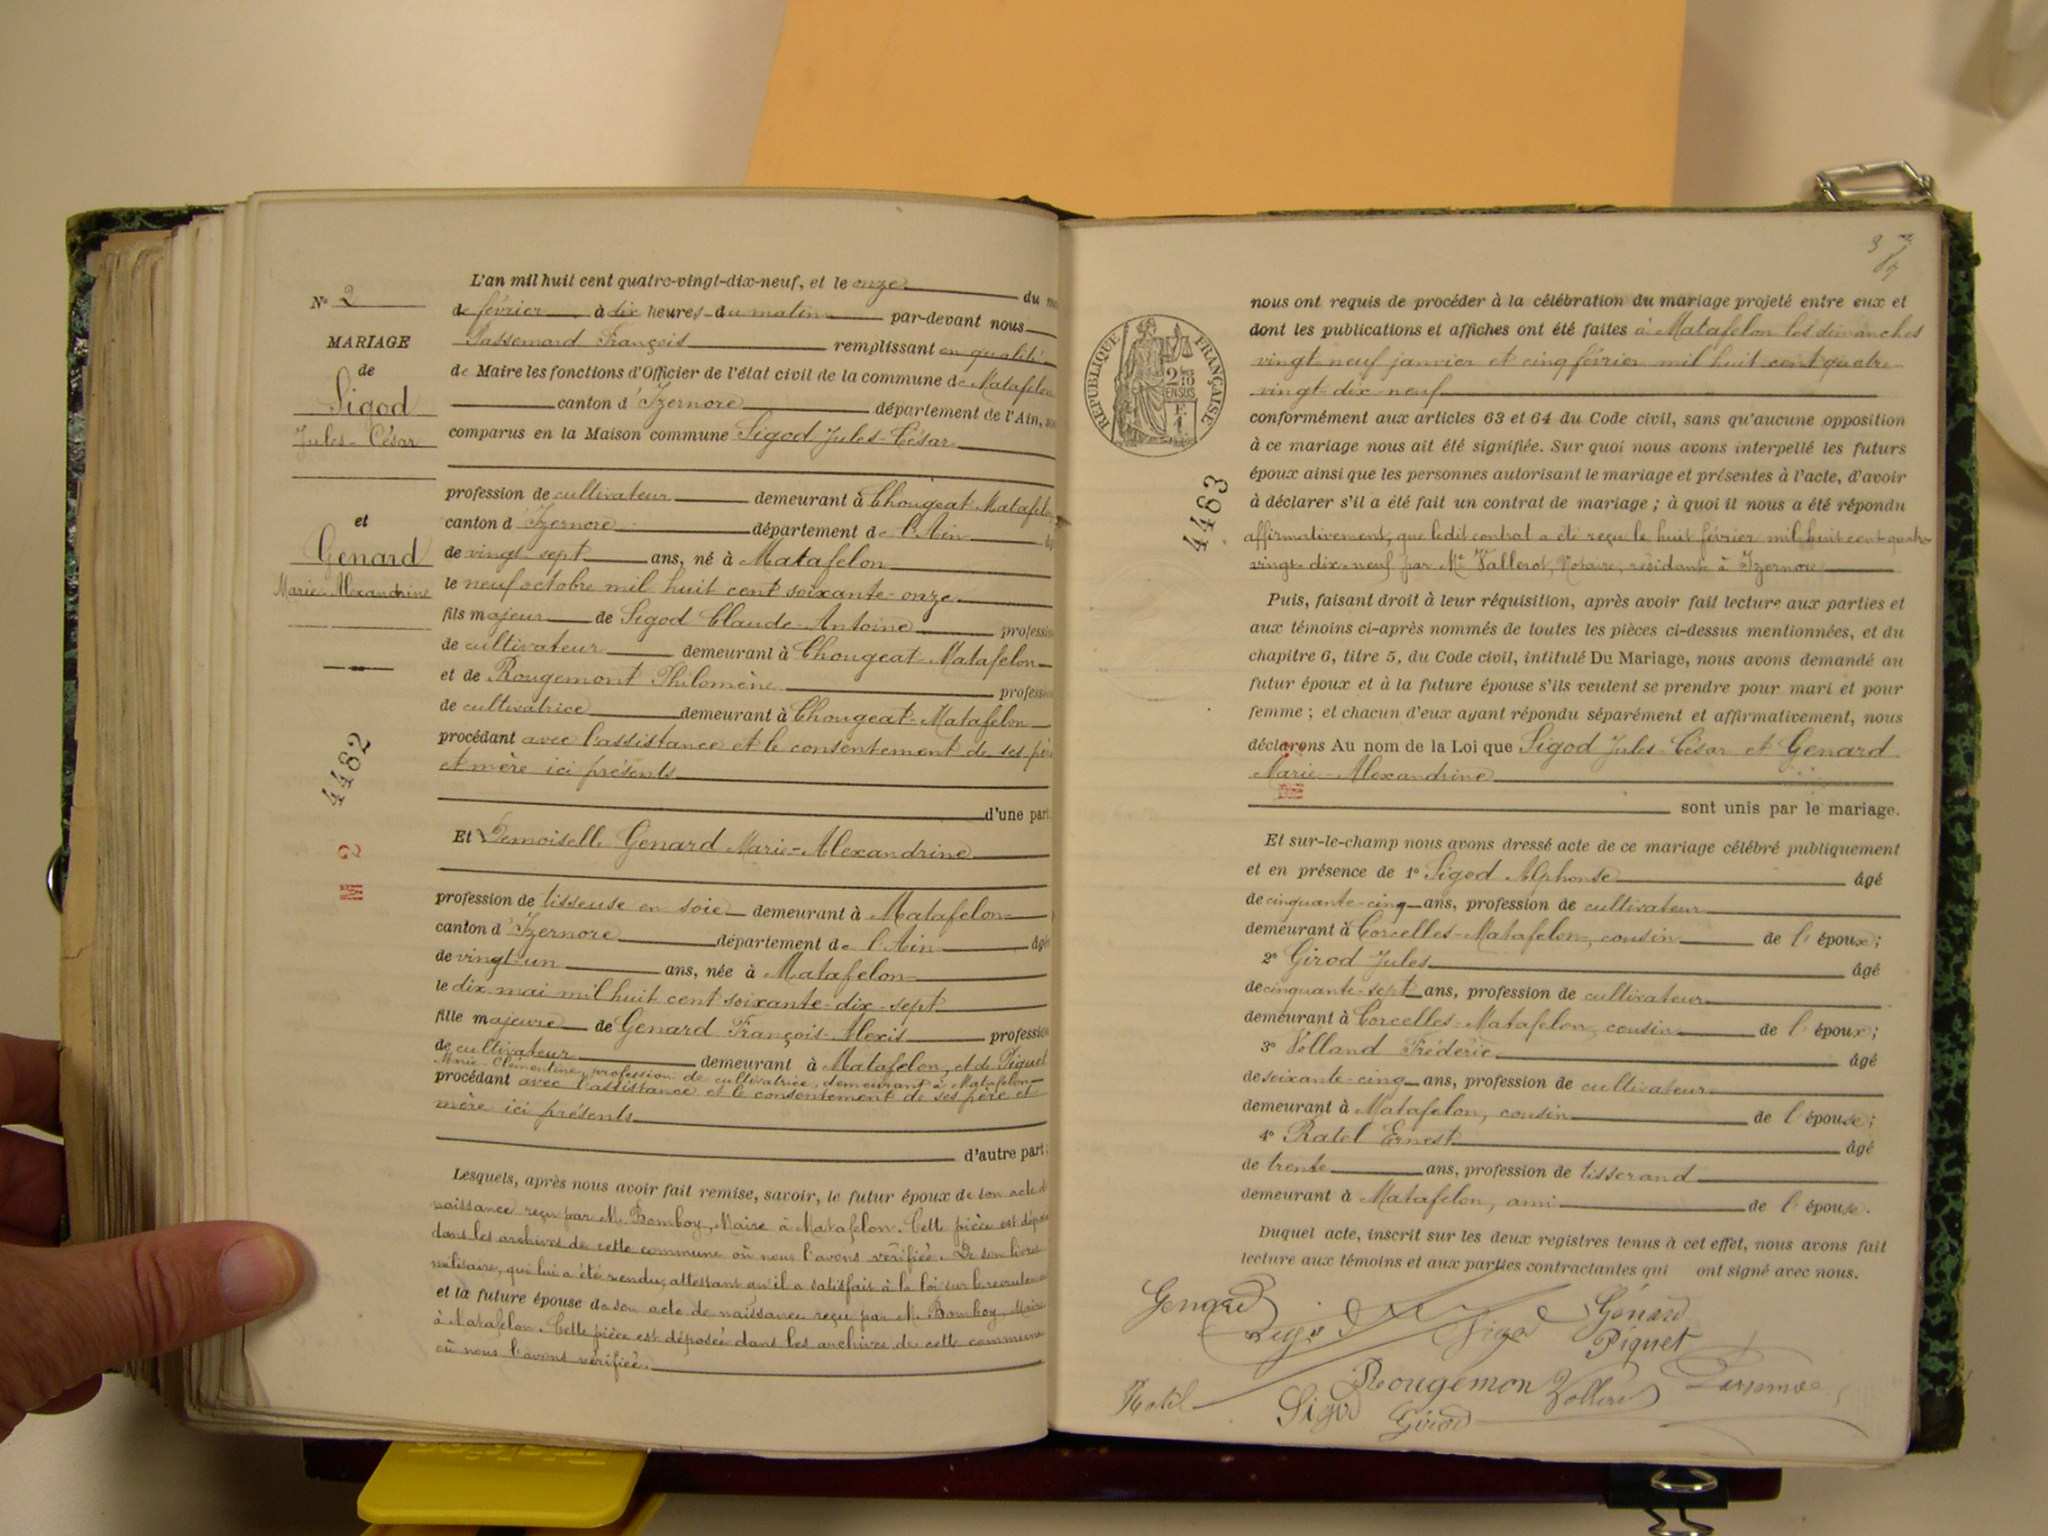 N° 2
MARIAGE
de
Sigod
Jules-César
et
Genard
Marie-Alexandrine
4482
L'an mil huit cent quatre-vingt-dix-neuf, et le onze du
de février à dix heures du matin par-devant nous
Passemard François remplissant en qualité
de Maire les fonctions d'Officier de l'état civil de la commune de Matafelon
canton d'Izernore département de l'Ain,
comparus en la Maison commune Sigod Jules-César
profession de cultivateur demeurant à Chougeat-Matafelon
canton d'Izernore département de l'Ain
de vingt-sept ans, né à Matafelon
le neuf octobre mil huit cent soixante-onze
fils majeur de Sigod Claude-Antoine profession
de cultivateur demeurant à Chougeat-Matafelon
et de Rougemont Philomène profession
de cultivatrice demeurant à Chougeat-Matafelon
procédant avec l'assistance et le consentement de ses père
et mère ici présents
d'une part
Et Demoiselle Genard Marie-Alexandrine
profession de tisseuse en soie demeurant à Matafelon
canton d'Izernore département de l'Ain âgée
de vingt-un ans, née à Matafelon
le dix mai mil huit cent soixante-dix-sept
fille majeure de Genard François-Alexis profession
de cultivateur demeurant à Matafelon, et de Piquet
Marie-Clémentine, profession de cultivatrice, demeurant à Matafelon
procédant avec l'assistance et le consentement de ses père et
mère ici présents
d'autre part.
Lesquels, après nous avoir fait remise, savoir, le futur époux de son acte de
naissance reçu par M. Bomboy, Maire à Matafelon. Cette pièce est déposée
dans les archives de cette commune où nous l'avons vérifiée. De son livret
militaire, qui lui a été rendu, attestant qu'il a satisfait à la loi sur le recrutement
et la future épouse de son acte de naissance reçu par M. Bomboy, Maire
à Matafelon. Cette pièce est déposée dans les archives de cette commune
où nous l'avons vérifiée.
RÉPUBLIQUE FRANÇAISE
4483
nous ont requis de procéder à la célébration du mariage projeté entre eux et
dont les publications et affiches ont été faites à Matafelon les dimanches
vingt-neuf janvier et cinq février mil huit cent quatre
vingt-dix-neuf
conformément aux articles 63 et 64 du Code civil, sans qu'aucune opposition
à ce mariage nous ait été signifiée. Sur quoi nous avons interpellé les futurs
époux ainsi que les personnes autorisant le mariage et présentes à l'acte, d'avoir
à déclarer s'il a été fait un contrat de mariage ; à quoi il nous a été répondu
affirmativement, que ledit contrat a été reçu le huit février mil huit cent quatre
vingt-dix-neuf par Me Vallerot, Notaire, résidant à Izernore
Puis, faisant droit à leur réquisition, après avoir fait lecture aux parties et
aux témoins ci-après nommés de toutes les pièces ci-dessus mentionnées, et du
chapitre 6, titre 5, du Code civil, intitulé Du Mariage, nous avons demandé au
futur époux et à la future épouse s'ils veulent se prendre pour mari et pour
femme ; et chacun d'eux ayant répondu séparément et affirmativement, nous
déclarons Au nom de la Loi que Sigod Jules-César et Genard
Marie-Alexandrine
sont unis par le mariage.
Et sur-le-champ nous avons dressé acte de ce mariage célébré publiquement
et en présence de 1° Sigod Alphonse âgé
de cinquante-cinq ans, profession de cultivateur
demeurant à Corcelles-Matafelon, cousin de l'époux ;
2° Girod Jules âgé
de cinquante-sept ans, profession de cultivateur
demeurant à Corcelles-Matafelon, cousin de l'époux ;
3° Volland Fréderic âgé
de soixante-cinq ans, profession de cultivateur
demeurant à Matafelon, cousin de l'épouse ;
4° Ratel Ernest âgé
de trente ans, profession de tisserand
demeurant à Matafelon, ami de l'épouse.
Duquel acte, inscrit sur les deux registres tenus à cet effet, nous avons fait
lecture aux témoins et aux parties contractantes qui ont signé avec nous.
Genard
Sigod Génard
Piquet
Rougemon
Sigod Girod